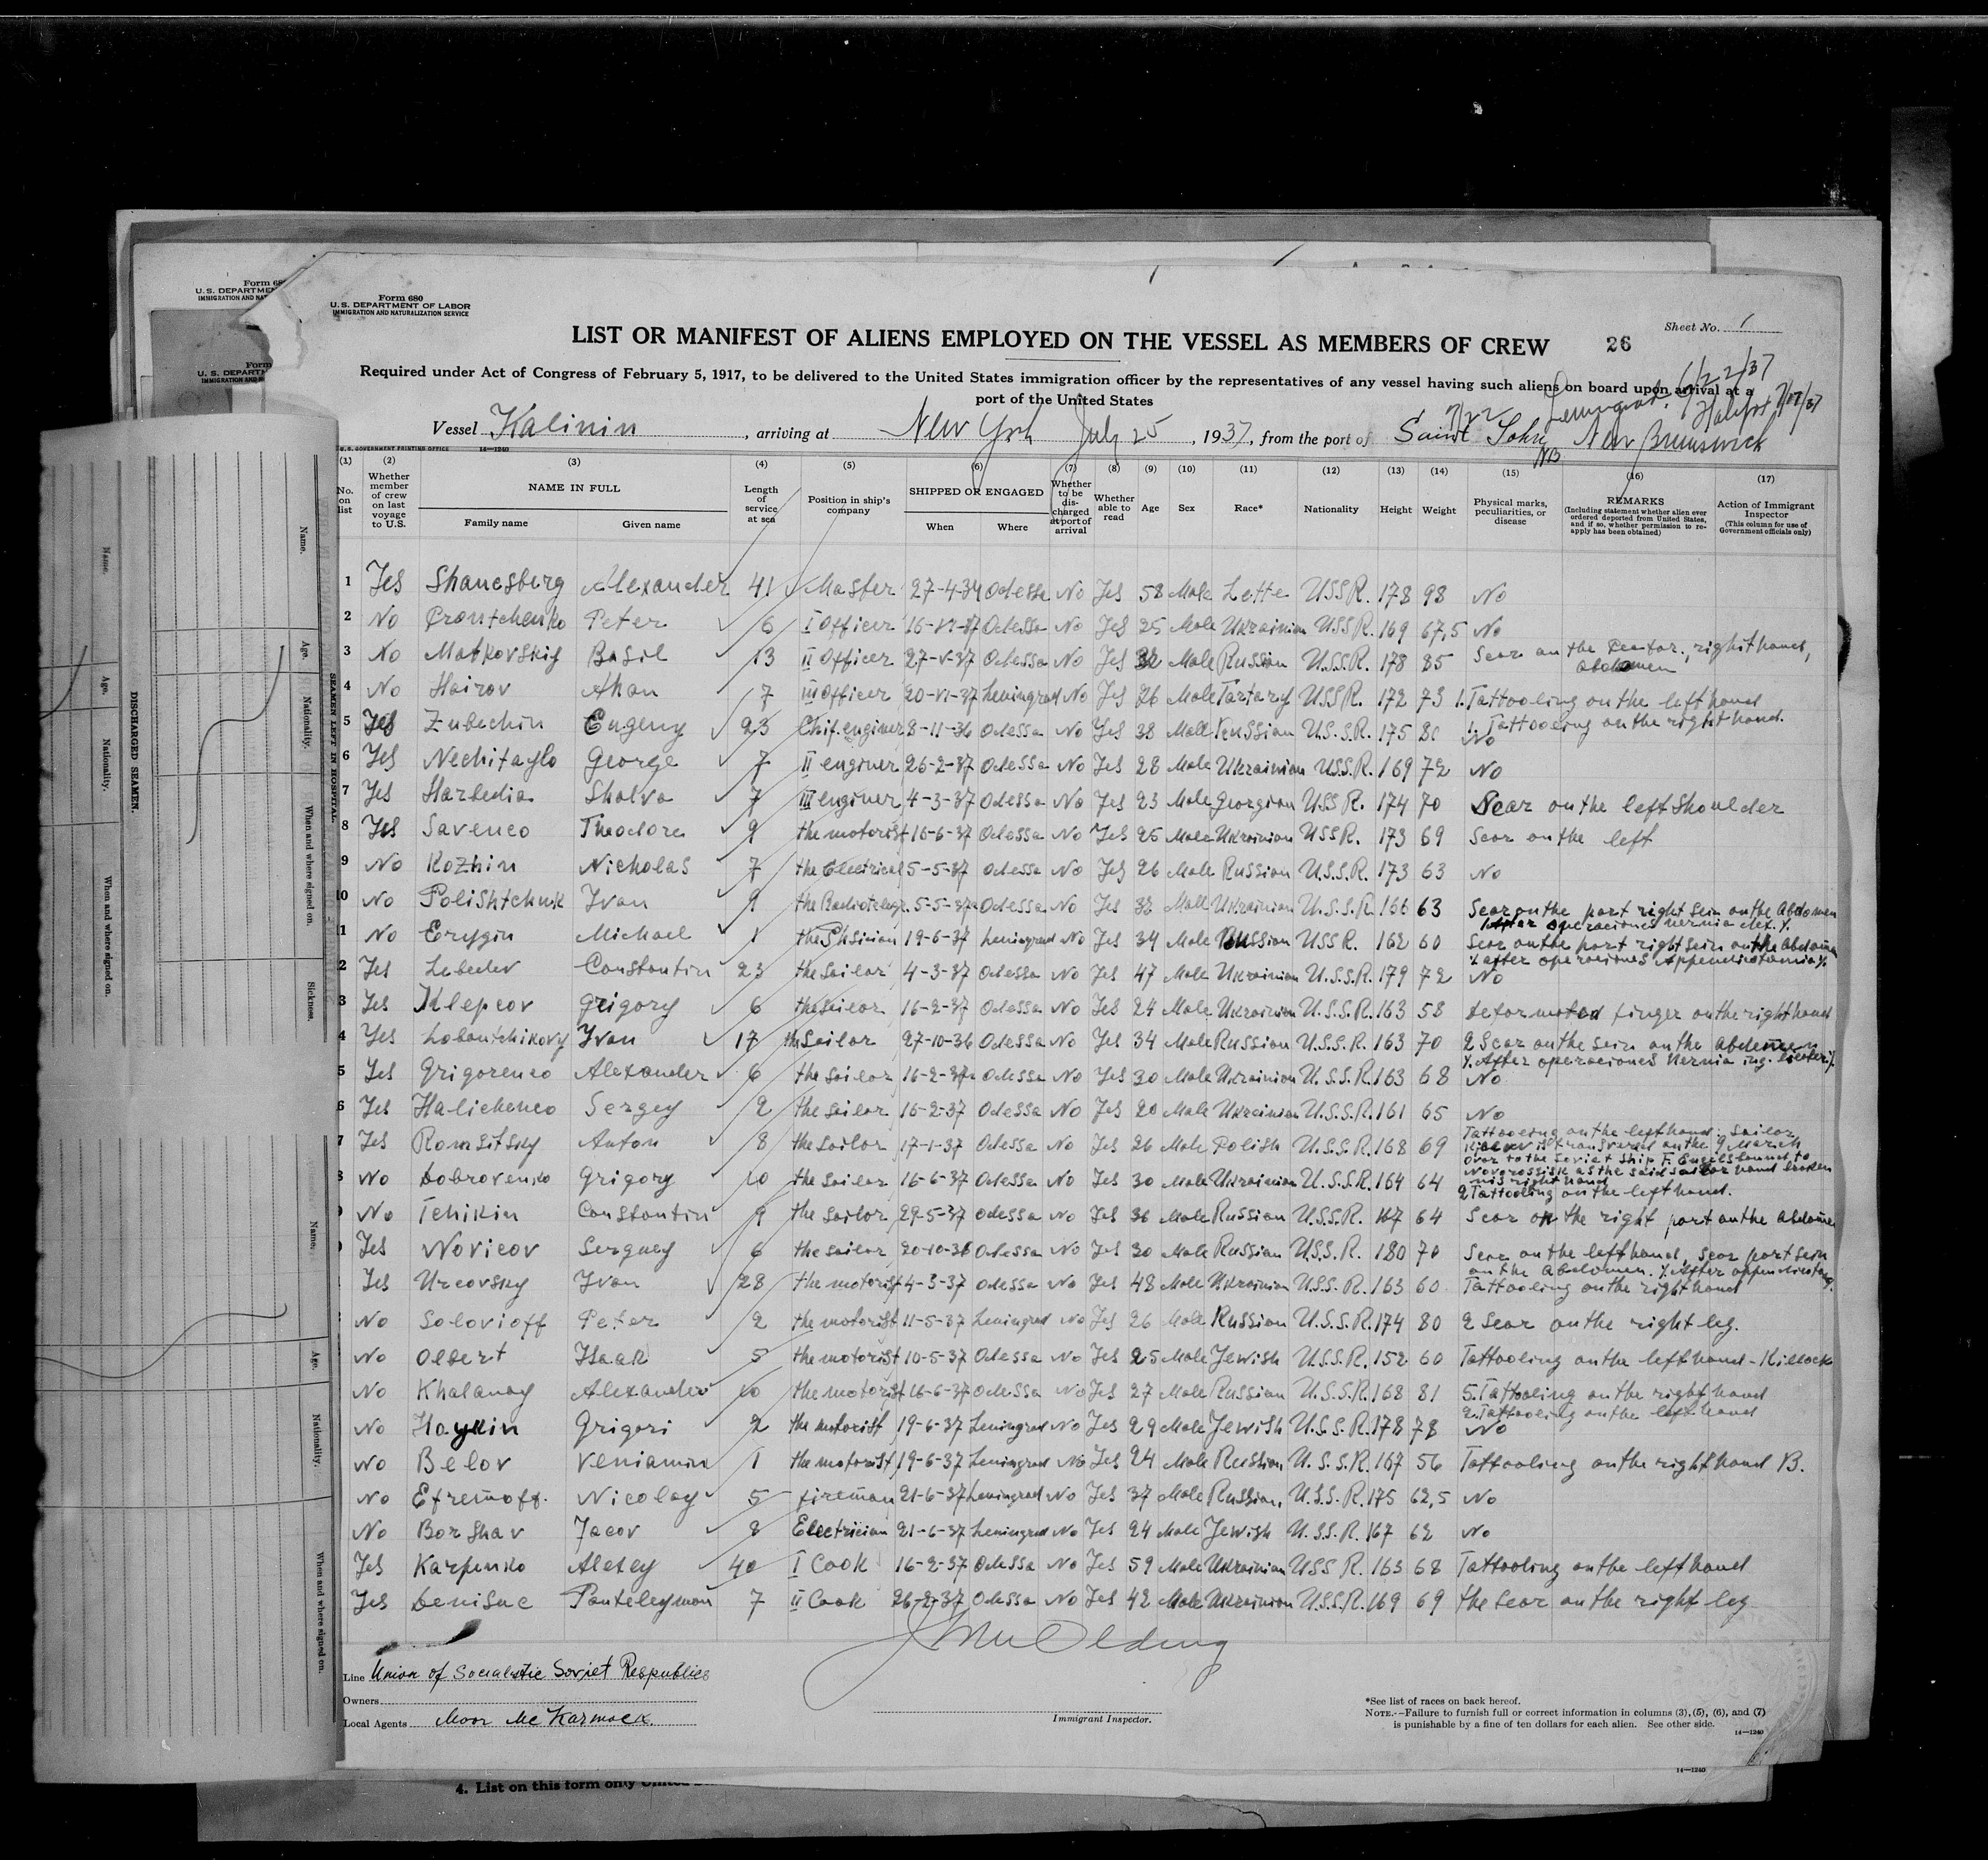 Form 68
U. S. DEPARTMENT
IMMIGRATION AND NAT
Form
U. S. DEPARTM
IMMIGRATION AND N
Form 680
U. S. DEPARTMENT OF LABOR
IMMIGRATION AND NATURALIZATION SERVICE
Sheet No. 1
LIST OR MANIFEST OF ALIENS EMPLOYED ON THE VESSEL AS MEMBERS OF CREW 26
Required under Act of Congress of February 5, 1917, to be delivered to the United States immigration officer by the representatives of any vessel having such aliens on board upon arrival at a
port of the United States
Leningrad 6/22/37
Halifax 7/17/37
7/22
Vessel Kalinin, arriving at New York July 25, 1937, from the port of Saint John New Brunswick
NB
U. S. GOVERNMENT PRINTING OFFICE 14—1240
(1) No. on list
(2) Whether member of crew on last voyage to U.S.
(3) NAME IN FULL Family name Given name
(4) Length of service at sea
(5) Position in ship's company
(6) SHIPPED OR ENGAGED When Where
(7) Whether to be discharged at port of arrival
(8) Whether able to read
(9) Age
(10) Sex
(11) Race*
(12) Nationality
(13) Height
(14) Weight
(15) Physical marks, peculiarities, or disease
(16) REMARKS (Including statement whether alien ever ordered deported from United States, and if so, whether permission to reapply has been obtained)
(17) Action of Immigrant Inspector (This column for use of Government officials only)
1 Yes Shanesberg Alexander 41 Master 27-4-34 Odessa No Yes 58 Male Lette USSR. 178 98 No
2 No Prontchenko Peter 6 I Officer Odessa No Yes 25 Male Ukrainian USSR. 169 67,5 No
3 No Matkovskiy Basil 13 II Officer 27-V-37 Odessa No Yes 32 Male Russian U.S.S.R. 178 85 Scar on the right hand, abdomen
4 No Hairov Akan 7 III Officer 20-VI-37 Leningrad No Yes 26 Male Tartary USSR. 172 73 1. Tattooling on the left hand
1. Tattooling on the right hand.
5 Yes Zubechin Eugeny 23 Chif. enginer 8-11-36 Odessa No Yes 38 Male Russian U.S.S.R. 175 80 No
6 Yes Nechitaylo George 7 II enginer 26-2-37 Odessa No Yes 28 Male Ukrainian USS.R. 169 72 No
7 Yes Harbedia Shalva 7 III enginer 4-3-37 Odessa No Yes 23 Male Georgian USSR. 174 70 Scar on the left shoulder
8 Yes Savenco Theodore 9 the motorist 16-6-37 Odessa No Yes 25 Male Ukrainian USSR. 173 69 Scar on the left
9 No Kozhin Nicholas 7 the Electrical 5-5-37 Odessa No Yes 26 Male Russian U.S.S.R. 173 63 No
10 No Polishtchuk Ivan 9 the Radiotelegr. 5-5-37 Odessa No Yes 32 Male Ukrainian U.S.S.R. 166 63 Scar on the part right sein on the Abdomen
After operaciones Hernia dex. %
1 No Erygin Michael 1 the Phsician 19-6-37 Leningrad No Yes 34 Male Russian USSR. 162 60 Scar on the part right sein on the abdomen
% after operaciones Appendicotamia %
2 Yes Lebedev Constantin 23 the sailor 4-3-37 Odessa No Yes 47 Male Ukrainian U.S.S.R. 179 72 No
3 Yes Klepcov Grigory 6 the sailor 16-2-37 Odessa No Yes 24 Male Ukrainian U.S.S.R. 163 58 deformated finger on the right hand
4 Yes Lobantchikovy Ivan 17 the Sailor 27-10-36 Odessa No Yes 34 Male Russian U.S.S.R. 163 70 2 Scar on the sein on the abdomen
% After operaciones Hernia ing.
5 Yes Grigorenco Alexander 6 the sailor 16-2-37 Odessa No Yes 30 Male Ukrainian U.S.S.R. 163 68 No
6 Yes Halichenco Sergey 2 the sailor 16-2-37 Odessa No Yes 20 Male Ukrainian U.S.S.R. 161 65 No
7 Yes Romsitsky Anton 8 the sailor 17-1-37 Odessa No Yes 26 Male Polish U.S.S.R. 168 69 Tattooling on the left hand. Sailor
transfered on the 9 March
over to the Soviet ship F. Engels bound to
Novorossisk as the said sailor hand broken
his right hand
8 No Dobrovenko Grigory 10 the sailor 16-6-37 Odessa No Yes 30 Male Ukrainian U.S.S.R. 164 64 2 Tattooling on the left hand.
9 No Tchikin Constantin 9 the sailor 29-5-37 Odessa No Yes 36 Male Russian U.S.S.R. 167 64 Scar on the right part on the abdomen
Yes Novicov Serguey 6 the sailor 20-10-36 Odessa No Yes 30 Male Russian U.S.S.R. 180 70 Scar on the left hand, scar part sein
on the abdomen. % After
Yes Urcovsky Ivan 28 the motorist 4-3-37 Odessa No Yes 48 Male Ukrainian U.S.S.R. 163 60 Tattooling on the right hand
No Solovioff Peter 2 the motorist 11-5-37 Leningrad No Yes 26 Male Russian U.S.S.R. 174 80 2 Scar on the right leg.
No Olbert Isaak 5 the motorist 10-5-37 Odessa No Yes 25 Male Jewish U.S.S.R. 152 60 Tattooling on the left hand -
No Khalanay Alexander 10 the motorist 16-6-37 Odessa No Yes 27 Male Russian U.S.S.R. 168 81 5. Tattooling on the right hand
2. Tattooling on the left hand
No Haykin Grigori 2 the motorist 19-6-37 Leningrad No Yes 29 Male Jewish U.S.S.R. 178 78 No
No Belov Veniamin 1 the motorist 19-6-37 Leningrad No Yes 24 Male Russian U.S.S.R. 167 56 Tattooling on the right hand B.
No Efremoff. Nicolay 5 fireman 21-6-37 Leningrad No Yes 37 Male Russian. U.S.S.R. 175 62,5 No
No Borshav Jacov 8 Electrician 21-6-37 Leningrad No Yes 24 Male Jewish U.S.S.R. 167 62 No
Yes Karpenko Alexey 40 I Cook 16-2-37 Odessa No Yes 59 Male Ukrainian USSR. 163 68 Tattooling on the left hand
Yes Denisuc Panteleymon 7 II Cook 26-2-37 Odessa No Yes 42 Male Ukrainian U.S.S.R. 169 69 the scar on the right leg
Line Union of Socialistic Soviet Respublics
Owners
Local Agents Moor Mc Karmack.
Immigrant Inspector.
*See list of races on back hereof.
NOTE.—Failure to furnish full or correct information in columns (3), (5), (6), and (7)
is punishable by a fine of ten dollars for each alien. See other side.
14—1240
14—1240
4. List on this form only United
DISCHARGED SEAMEN.
Name.
Age.
Nationality.
When and where signed on.
SEAMEN LEFT IN HOSPITAL
Name.
Age.
Nationality.
When and where signed on.
Sickness.
Name.
Age.
Nationality.
When and where signed on.